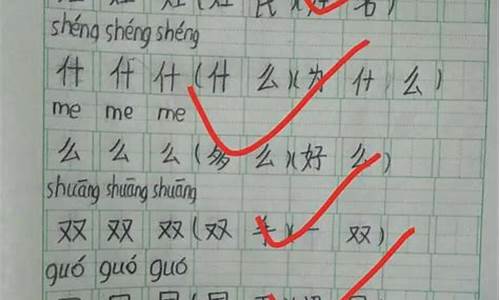 shéng shéng shéng
什 什 什 (什 么)(为 什 么)
me me me
么 么 么 (多 么)(好 么)
shuāng shuāng shuāng
双 双 双 (双 手)(一 双)
guó guó guó